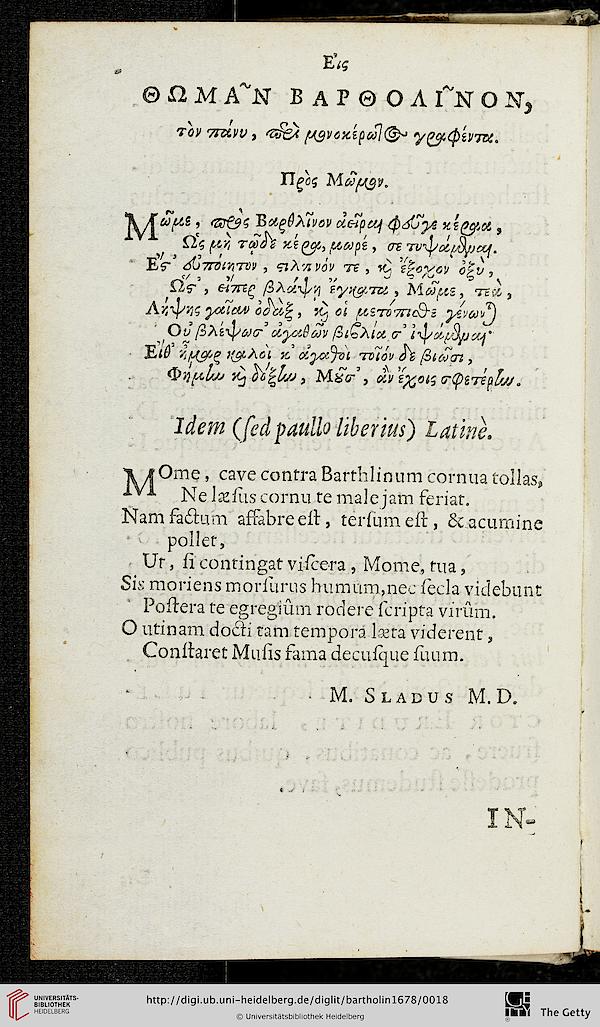 Εἰς
ΘΩΜΑ͂Ν ΒΑΡΘΟΛΙ͂ΝΟΝ,
τὸν πάνυ, περὶ μονοκέρωτος γράφέντα.
Πρὸς Μῶμον.
Μῶμε, πρὸς Βαρθλῖνον ἀεῖραι φεῦγε κέραα,
Ὡς μὴ τῷδε κέρᾳ, μωρέ, σε τυψάμεναι.
Ἔς' εὐποίητον, στιλπνόν τε, καὶ ἔξοχον ὀξὺ,
Ὥς', εἴπερ βλάψῃ ἔγκατα, Μῶμε, τεὰ,
Λήψῃς γαῖαν ὀδὰξ, καὶ οἱ μετόπισθε γένωνται
Οὐ βλέψωσ' ἀγαθῶν βιβλία σ' ἰψάμεναι·
Εἴθ' ἦμαρ καλοὶ κ' ἀγαθοὶ τοῖόν δε βιῶσι,
Φήμην καὶ δόξην, Μοῦσ', ἂν ἔχοις σφετέρην.
Idem (ſed paullo liberius) Latinè.
MOme, cave contra Barthlinum cornua tollas,
Ne læſus cornu te male jam feriat.
Nam factum affabre eſt, terſum eſt, & acumine
pollet,
Ut, ſi contingat viſcera, Mome, tua,
Sis moriens morſurus humum, nec ſecla videbunt
Poſtera te egregiûm rodere ſcripta virûm.
O utinam docti tam tempora læta viderent,
Conſtaret Muſis fama decuſque ſuum.
M. SLADUS M.D.
IN-
UNIVERSITÄTS-
BIBLIOTHEK
HEIDELBERG
http://digi.ub.uni-heidelberg.de/diglit/bartholin1678/0018
© Universitätsbibliothek Heidelberg
The Getty